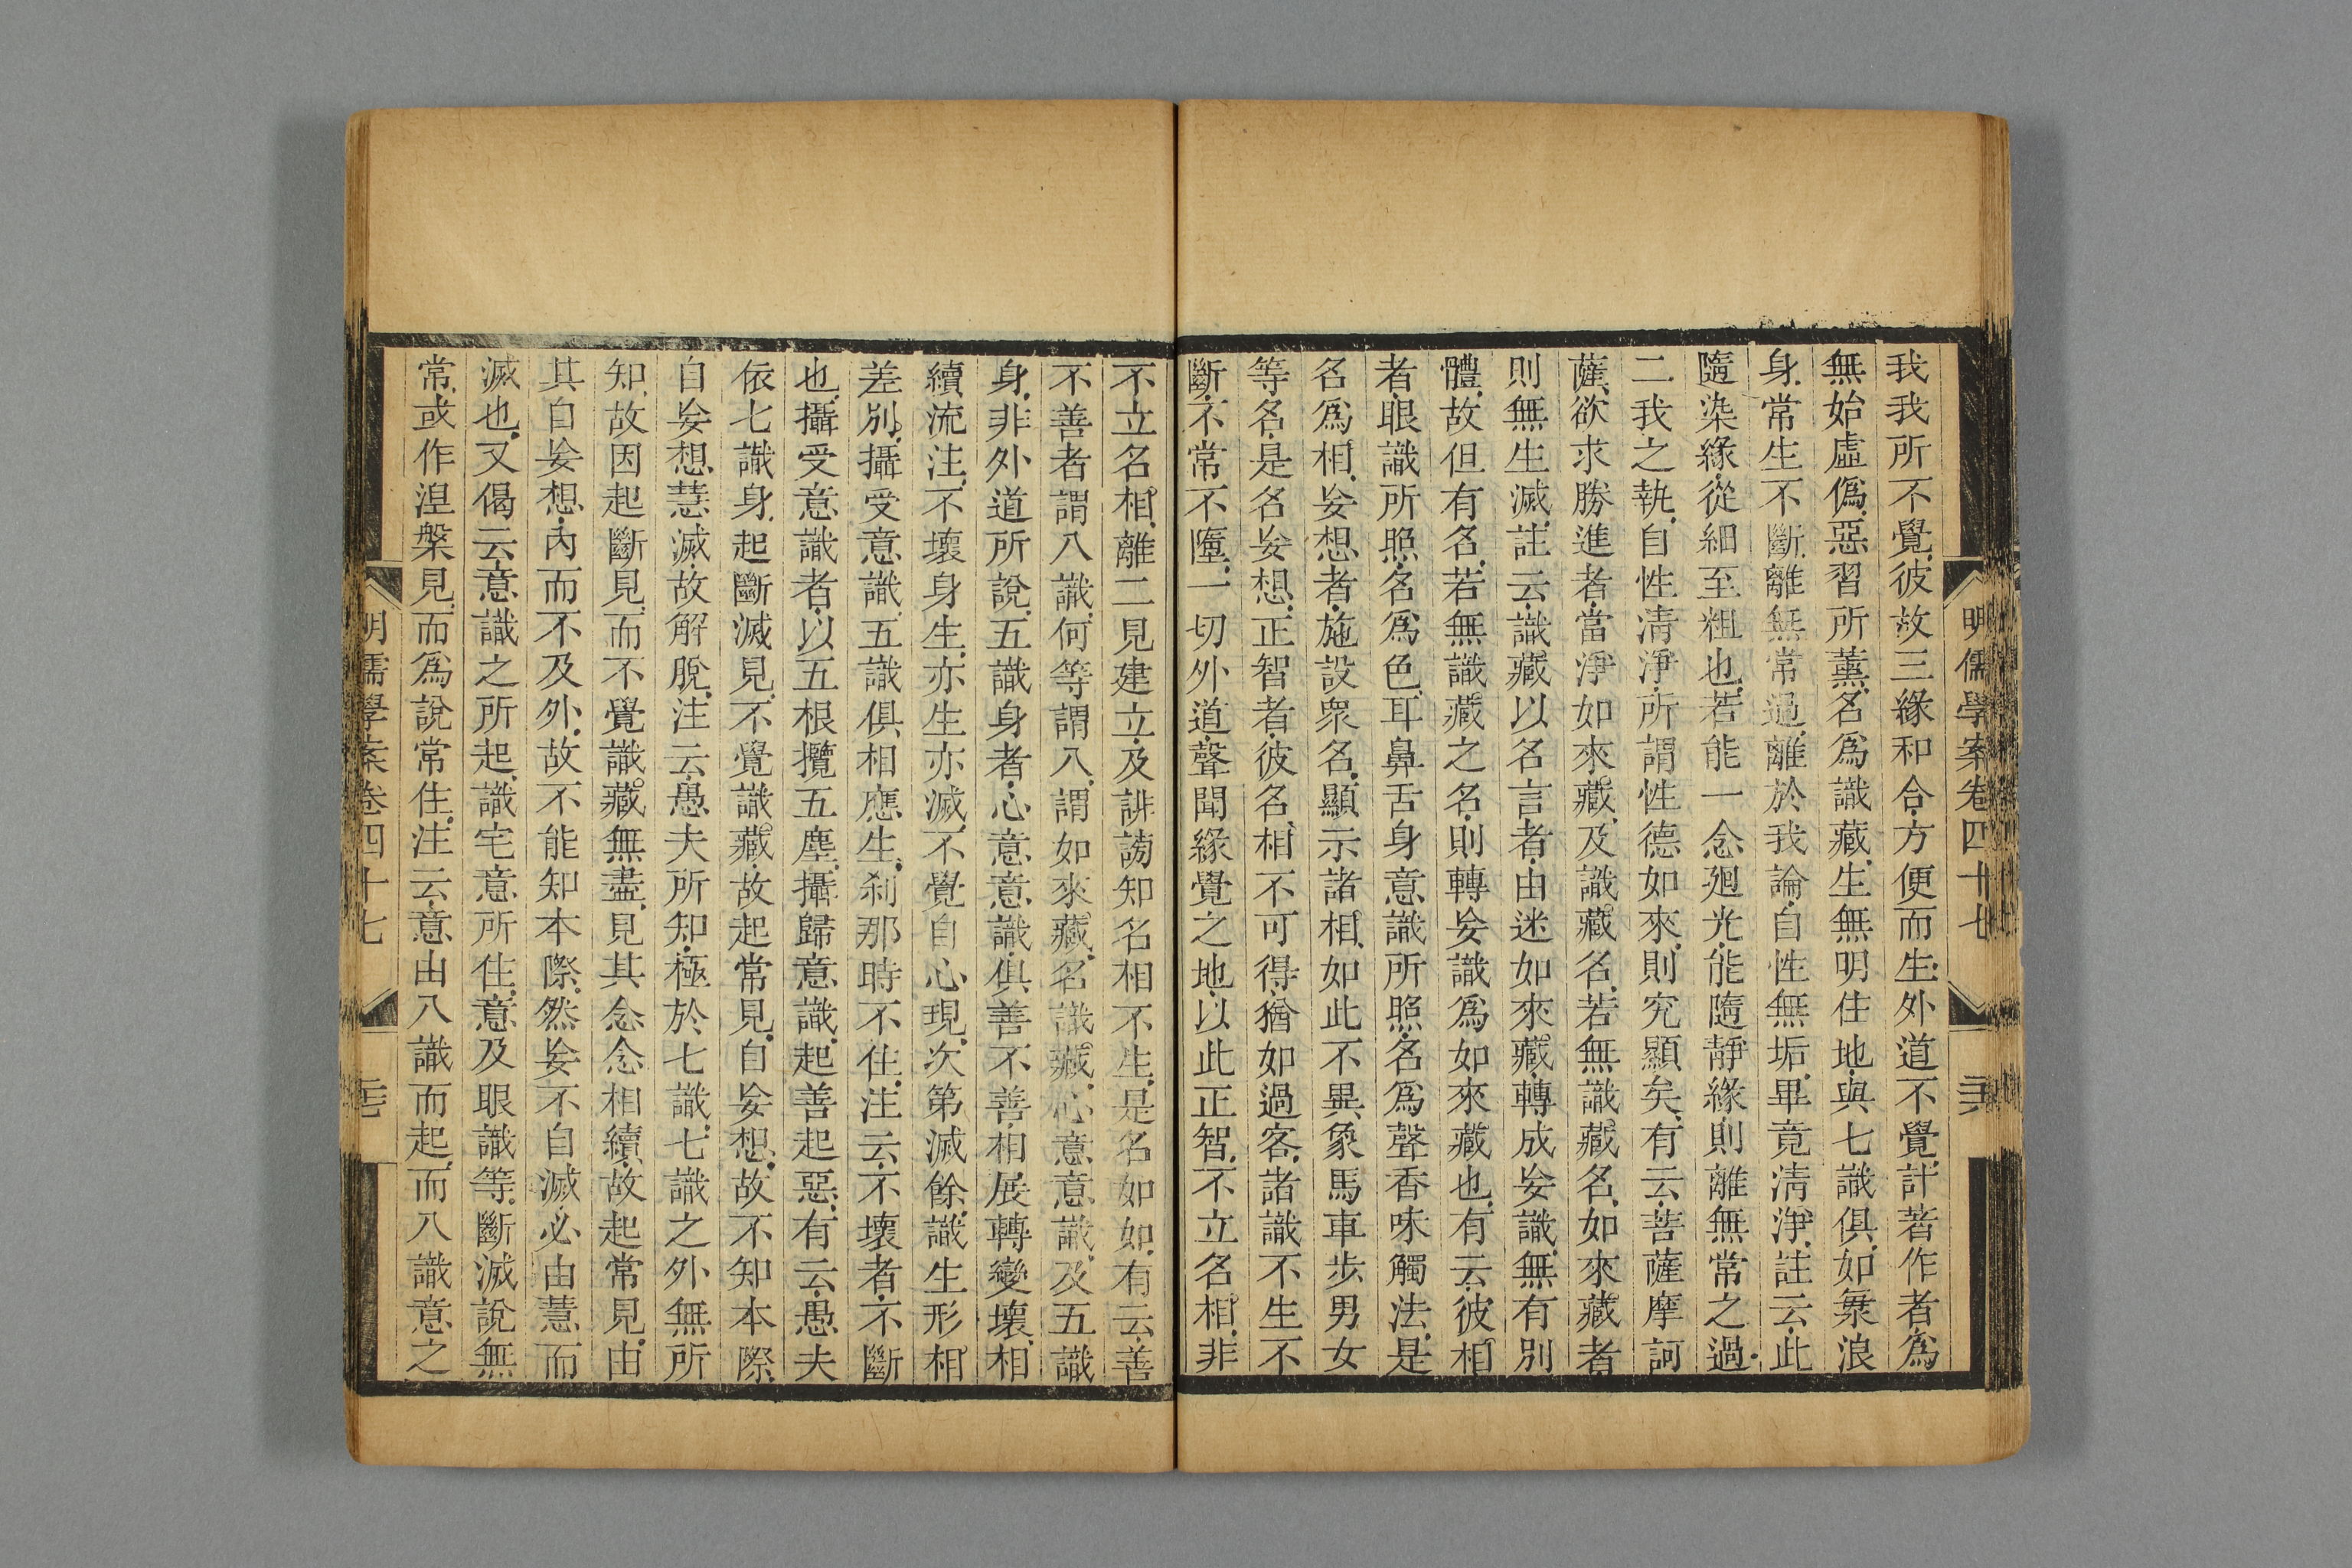 明儒學案卷四十七
我我所不覺彼故三緣和合方便而生外道不覺計著作者爲
無始虛僞惡習所薰名爲識藏生無明住地與七識俱如海浪
身常生不斷離無常過離於我論自性無垢畢竟淸淨註云此
隨染緣從細至粗也若能一念廻光能隨靜緣則離無常之過
二我之執自性淸淨所謂性德如來則究顯矣有云菩薩摩訶
薩欲求勝進者當淨如來藏及識藏名若無識藏名如來藏者
則無生滅註云識藏以名言者由迷如來藏轉成妄識無有別
體故但有名若無識藏之名則轉妄識爲如來藏也有云彼相
者眼識所照名爲色耳鼻舌身意識所照名爲聲香味觸法是
名爲相妄想者施設衆名顯示諸相如此不異象馬車步男女
等名是名妄想正智者彼名相不可得猶如過客諸識不生不
斷不常不墮一切外道聲聞緣覺之地以此正智不立名相非
不立名相離二見建立及誹謗知名相不生是名如如有云善
不善者謂八識何等謂八謂如來藏名識藏心意意識及五識
身非外道所說五識身者心意意識俱善不善相展轉變壞相
續流注不壞身生亦生亦滅不覺自心現次第滅餘識生形相
差別攝受意識五識俱相應生刹那時不住注云不壞者不斷
也攝受意識者以五根攬五塵攝歸意識起善起惡有云愚夫
依七識身起斷滅見不覺識藏故起常見自妄想故不知本際
自妄想慧滅故解脫注云愚夫所知極於七識七識之外無所
知故因起斷見而不覺識藏無盡見其念念相續故起常見由
其自妄想內而不及外故不能知本際然妄不自滅必由慧而
滅也又偈云意識之所起識宅意所住意及眼識等斷滅說無
常或作涅槃見而爲說常住注云意由八識而起而八識意之
明儒學案卷四十七